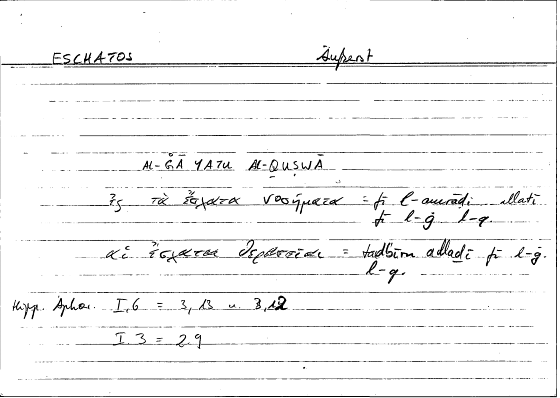 ESCHATOS äußerst
AL-ĠĀYATU AL-QUṢWĀ
ἐς τὰ ἔσχατα νοσήματα = fī l-amrāḍi allatī
fī l-ġ l-q.
αἱ ἔσχαται θεραπεῖαι = tadbīru allaḏī fī l-ġ.
l-q.
Hipp. Aphor. I,6 = 3,13 u 3,12
I.3 = 2.9